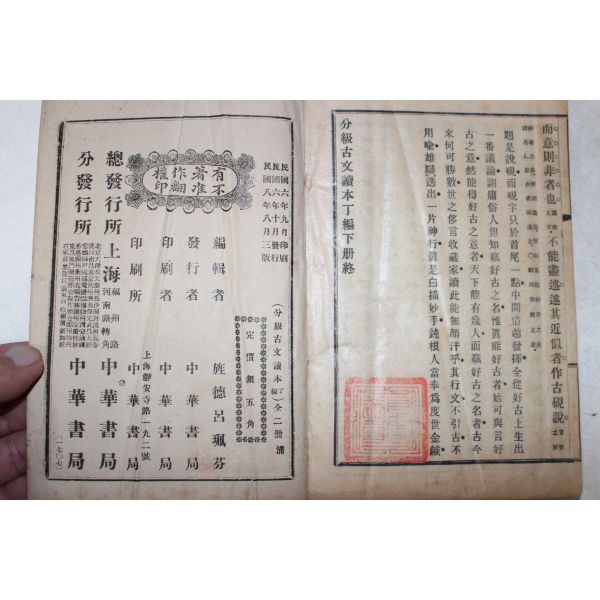 而意則非者也
不能盡述述其近似者作古硯說
題是說硯而硯字只於首尾一點中間借題發揮全從好古上生出
一番議論謂庸俗人但知竊好古之名惟眞能好古者始可與言好
古之意然能得好古之意者天下能有幾人而竊好古之名者古今
來何可勝數世之侈言收藏家讀此能無顏汗乎其行文不引古不
用喻雄辯迭出一片神行眞是白描妙手鈍根人當奉爲度世金鍼
分級古文讀本丁編下册終
民國六年九月印刷
民國六年十月發行
民國八年八月三版
有不
著准
作翻
權印
(分級古文讀本丁編)全二册
定價銀五角
編輯者 旌德呂珮芬
發行者 中華書局
印刷者 中華書局
印刷所 上海靜安寺路一九二號 中華書局
總發行所 上海福州路河南路轉角 中華書局
分發行所 中華書局
(一七〇七)